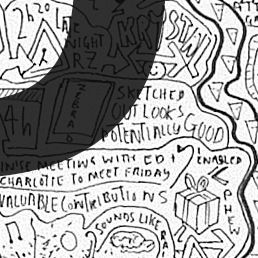 12h20
NIGHT
KRYSTAL
RZ
ZEBRA
SKETCHED
OUT LOOKS
POTENTIALLY GOOD
4h
MEETING WITH ED +
CHARLOTTE TO MEET FRIDAY
ENABLED
VALUABLE CONTRIBUTIONS
PHEW
SOUNDS LIKE A